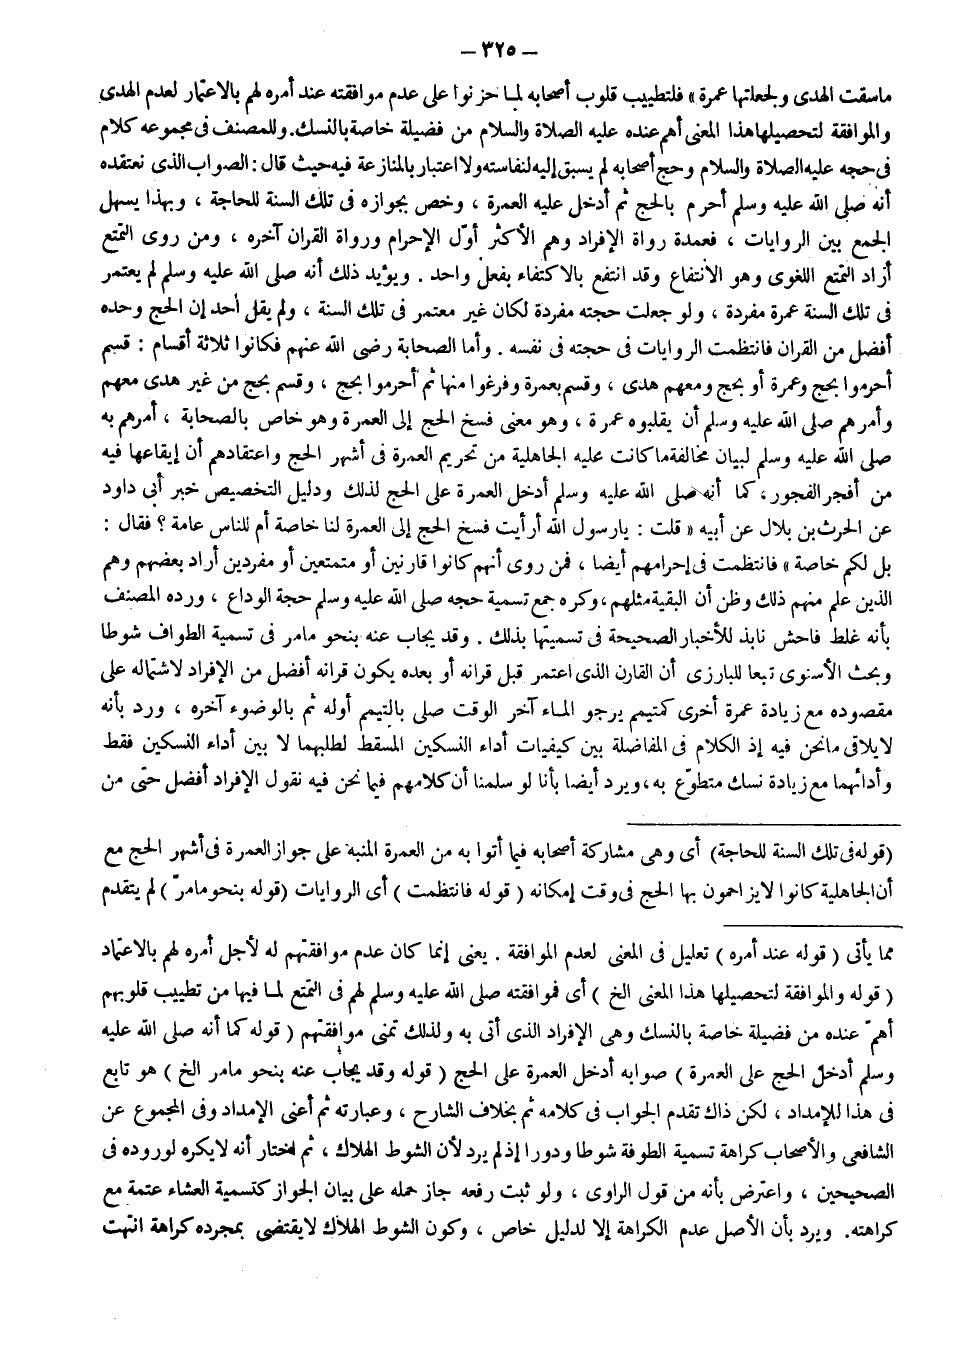 — ٣٢٥ —
ماسقت الهدى ولجعلتها عمرة » فلتطييب قلوب أصحابه لما حزنوا على عدم موافقته عند أمره لهم بالاعتمار لعدم الهدى
والموافقة لتحصيلها هذا المعنى أهم عنده عليه الصلاة والسلام من فضيلة خاصة بالنسك. وللمصنف فى مجموعه كلام
فى حجه عليه الصلاة والسلام وحج أصحابه لم يسبق إليه لنفاسته ولا اعتبار بالمنازعة فيه حيث قال : الصواب الذى نعتقده
أنه صلى الله عليه وسلم أحرم بالحج ثم أدخل عليه العمرة ، وخص بجوازه فى تلك السنة للحاجة ، وبهذا يسهل
الجمع بين الروايات ، فعمدة رواة الإفراد وهم الأكثر أوّل الإحرام ورواة القران آخره ، ومن روى التمتع
أراد التمتع اللغوى وهو الانتفاع وقد انتفع بالاكتفاء بفعل واحد . ويؤيد ذلك أنه صلى الله عليه وسلم لم يعتمر
فى تلك السنة عمرة مفردة ، ولو جعلت حجته مفردة لكان غير معتمر فى تلك السنة ، ولم يقل أحد إن الحج وحده
أفضل من القران فانتظمت الروايات فى حجته فى نفسه . وأما الصحابة رضى الله عنهم فكانوا ثلاثة أقسام : قسم
أحرموا بحج وعمرة أو بحج ومعهم هدى ، وقسم بعمرة وفرغوا منها ثم أحرموا بحج ، وقسم بحج من غير هدى معهم
وأمرهم صلى الله عليه وسلم أن يقلبوه عمرة ، وهو معنى فسخ الحج إلى العمرة وهو خاص بالصحابة ، أمرهم به
صلى الله عليه وسلم لبيان مخالفة ما كانت عليه الجاهلية من تحريم العمرة فى أشهر الحج واعتقادهم أن إيقاعها فيه
من أفجر الفجور ، كما أنه صلى الله عليه وسلم أدخل العمرة على الحج لذلك ودليل التخصيص خبر أبى داود
عن الحرث بن بلال عن أبيه « قلت : يارسول الله أرأيت فسخ الحج إلى العمرة لنا خاصة أم للناس عامة ؟ فقال :
بل لكم خاصة » فانتظمت فى إحرامهم أيضا ، فمن روى أنهم كانوا قارنين أو متمتعين أو مفردين أراد بعضهم وهم
الذين علم منهم ذلك وظن أن البقية مثلهم ، وكره جمع تسمية حجه صلى الله عليه وسلم حجة الوداع ، ورده المصنف
بأنه غلط فاحش نابذ للأخبار الصحيحة فى تسميتها بذلك . وقد يجاب عنه بنحو مامر فى تسمية الطواف شوطا
وبحث الأسنوى تبعا للبارزى أن القارن الذى اعتمر قبل قرانه أو بعده يكون قرانه أفضل من الإفراد لاشتماله على
مقصوده مع زيادة عمرة أخرى كمتيمم يرجو الماء آخر الوقت صلى بالتيمم أوله ثم بالوضوء آخره ، ورد بأنه
لايلاقى مانحن فيه إذ الكلام فى المفاضلة بين كيفيات أداء النسكين المسقط لطلبهما لا بين أداء النسكين فقط
وأدائهما مع زيادة نسك متطوّع به ، ويرد أيضا بأنا لو سلمنا أن كلامهم فيما نحن فيه نقول الإفراد أفضل حتى من
(قوله فى تلك السنة للحاجة) أى وهى مشاركة أصحابه فيما أتوا به من العمرة المنبه على جواز العمرة فى أشهر الحج مع
أن الجاهلية كانوا لايزاحمون بها الحج فى وقت إمكانه ( قوله فانتظمت ) أى الروايات (قوله بنحو مامرّ) لم يتقدم
مما يأتى ( قوله عند أمره ) تعليل فى المعنى لعدم الموافقة . يعنى إنما كان عدم موافقتهم له لأجل أمره لهم بالاعتماد
( قوله والموافقة لتحصيلها هذا المعنى الخ ) أى فموافقته صلى الله عليه وسلم لهم فى التمتع لما فيها من تطييب قلوبهم
أهمّ عنده من فضيلة خاصة بالنسك وهى الإفراد الذى أتى به ولذلك تمنى موافقتهم ( قوله كما أنه صلى الله عليه
وسلم أدخل الحج على العمرة ) صوابه أدخل العمرة على الحج ( قوله وقد يجاب عنه بنحو مامر الخ ) هو تابع
فى هذا للإمداد ، لكن ذاك تقدم الجواب فى كلامه ثم بخلاف الشارح ، وعبارته ثم أعنى الإمداد وفى المجموع عن
الشافعى والأصحاب كراهة تسمية الطوفة شوطا ودورا إذ لم يرد لأن الشوط الهلاك ، ثم اختار أنه لايكره لوروده فى
الصحيحين ، واعترض بأنه من قول الراوى ، ولو ثبت رفعه جاز حمله على بيان الجواز كتسمية العشاء عتمة مع
كراهته. ويرد بأن الأصل عدم الكراهة إلا لدليل خاص ، وكون الشوط الهلاك لايقتضى بمجرده كراهة انتهت